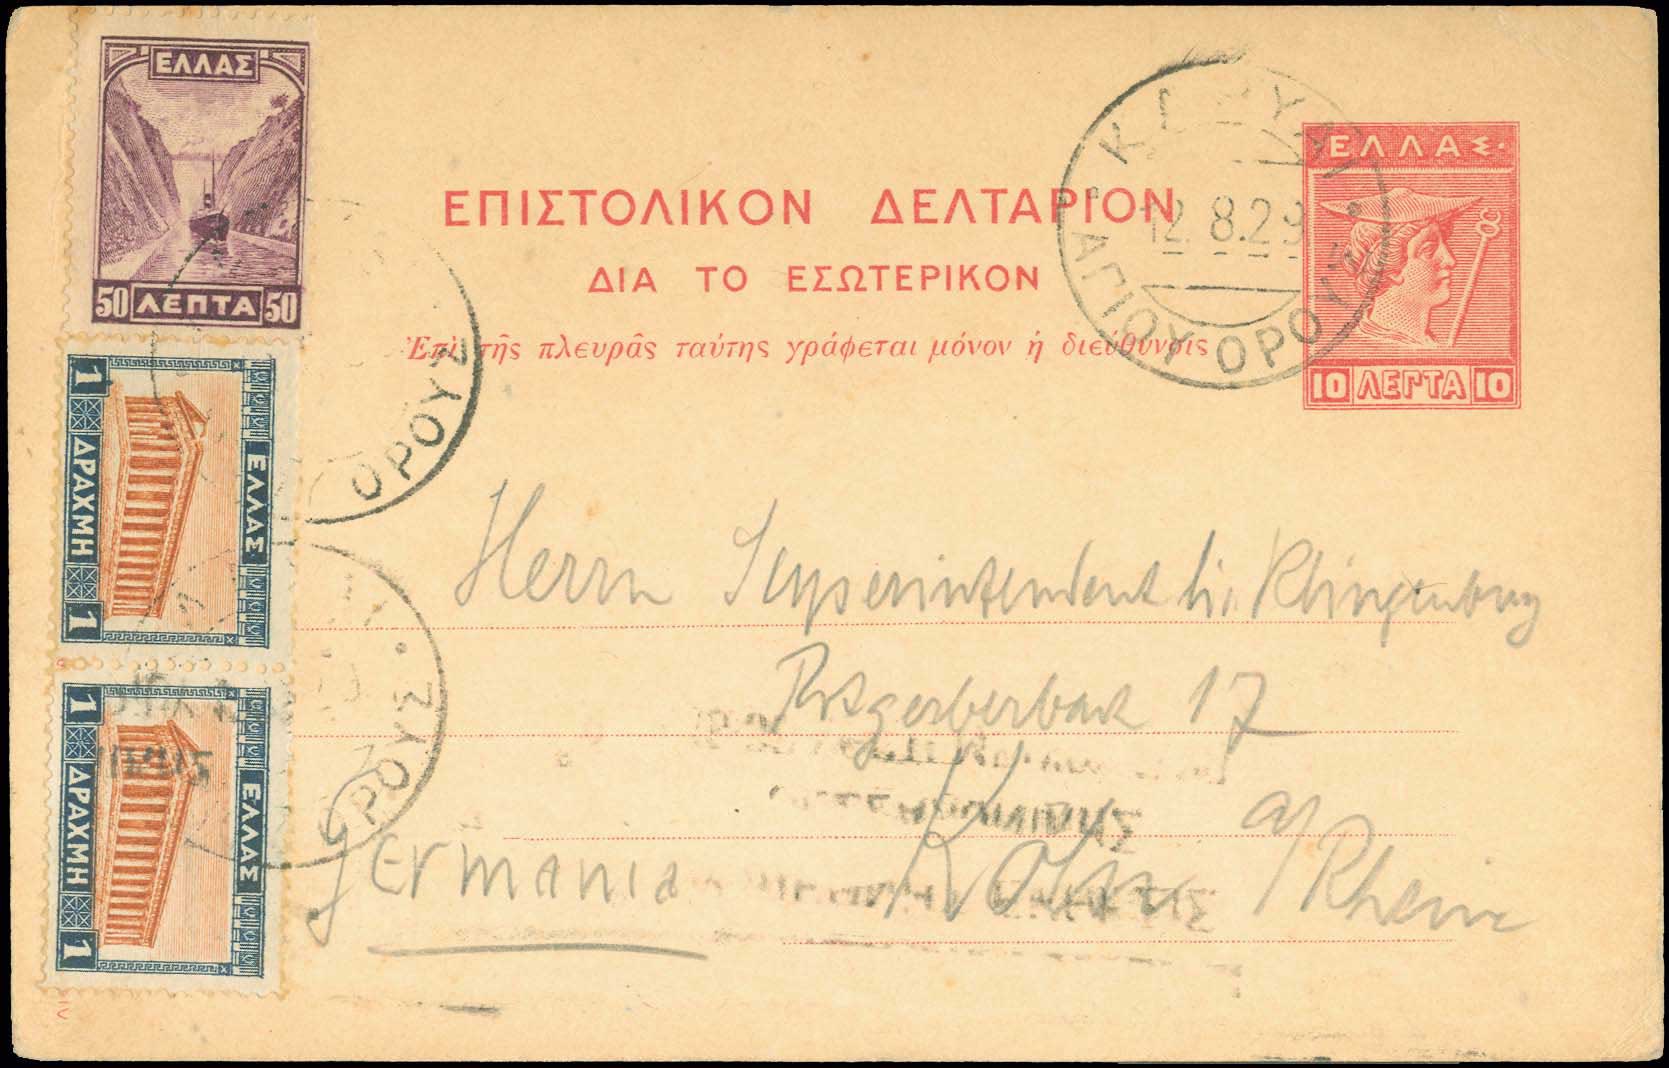 ΕΛΛΑΣ
50 ΛΕΠΤΑ 50
ΕΛΛΑΣ
1 ΔΡΑΧΜΗ 1
ΕΛΛΑΣ
1 ΔΡΑΧΜΗ 1
ΟΡΟΥΣ
ΟΡΟΥΣ
ΕΠΙΣΤΟΛΙΚΟΝ ΔΕΛΤΑΡΙΟΝ
ΔΙΑ ΤΟ ΕΣΩΤΕΡΙΚΟΝ
Ἐπὶ τῆς πλευρᾶς ταύτης γράφεται μόνον ἡ διεύθυνσις
ΚΑΡΥΑΙ
12.8.29
ΑΓΙΟΥ ΟΡΟΥΣ
ΕΛΛΑΣ
10 ΛΕΠΤΑ 10
Herrn Superintendent Klingenburg
17
Köln a/Rhein
Germania